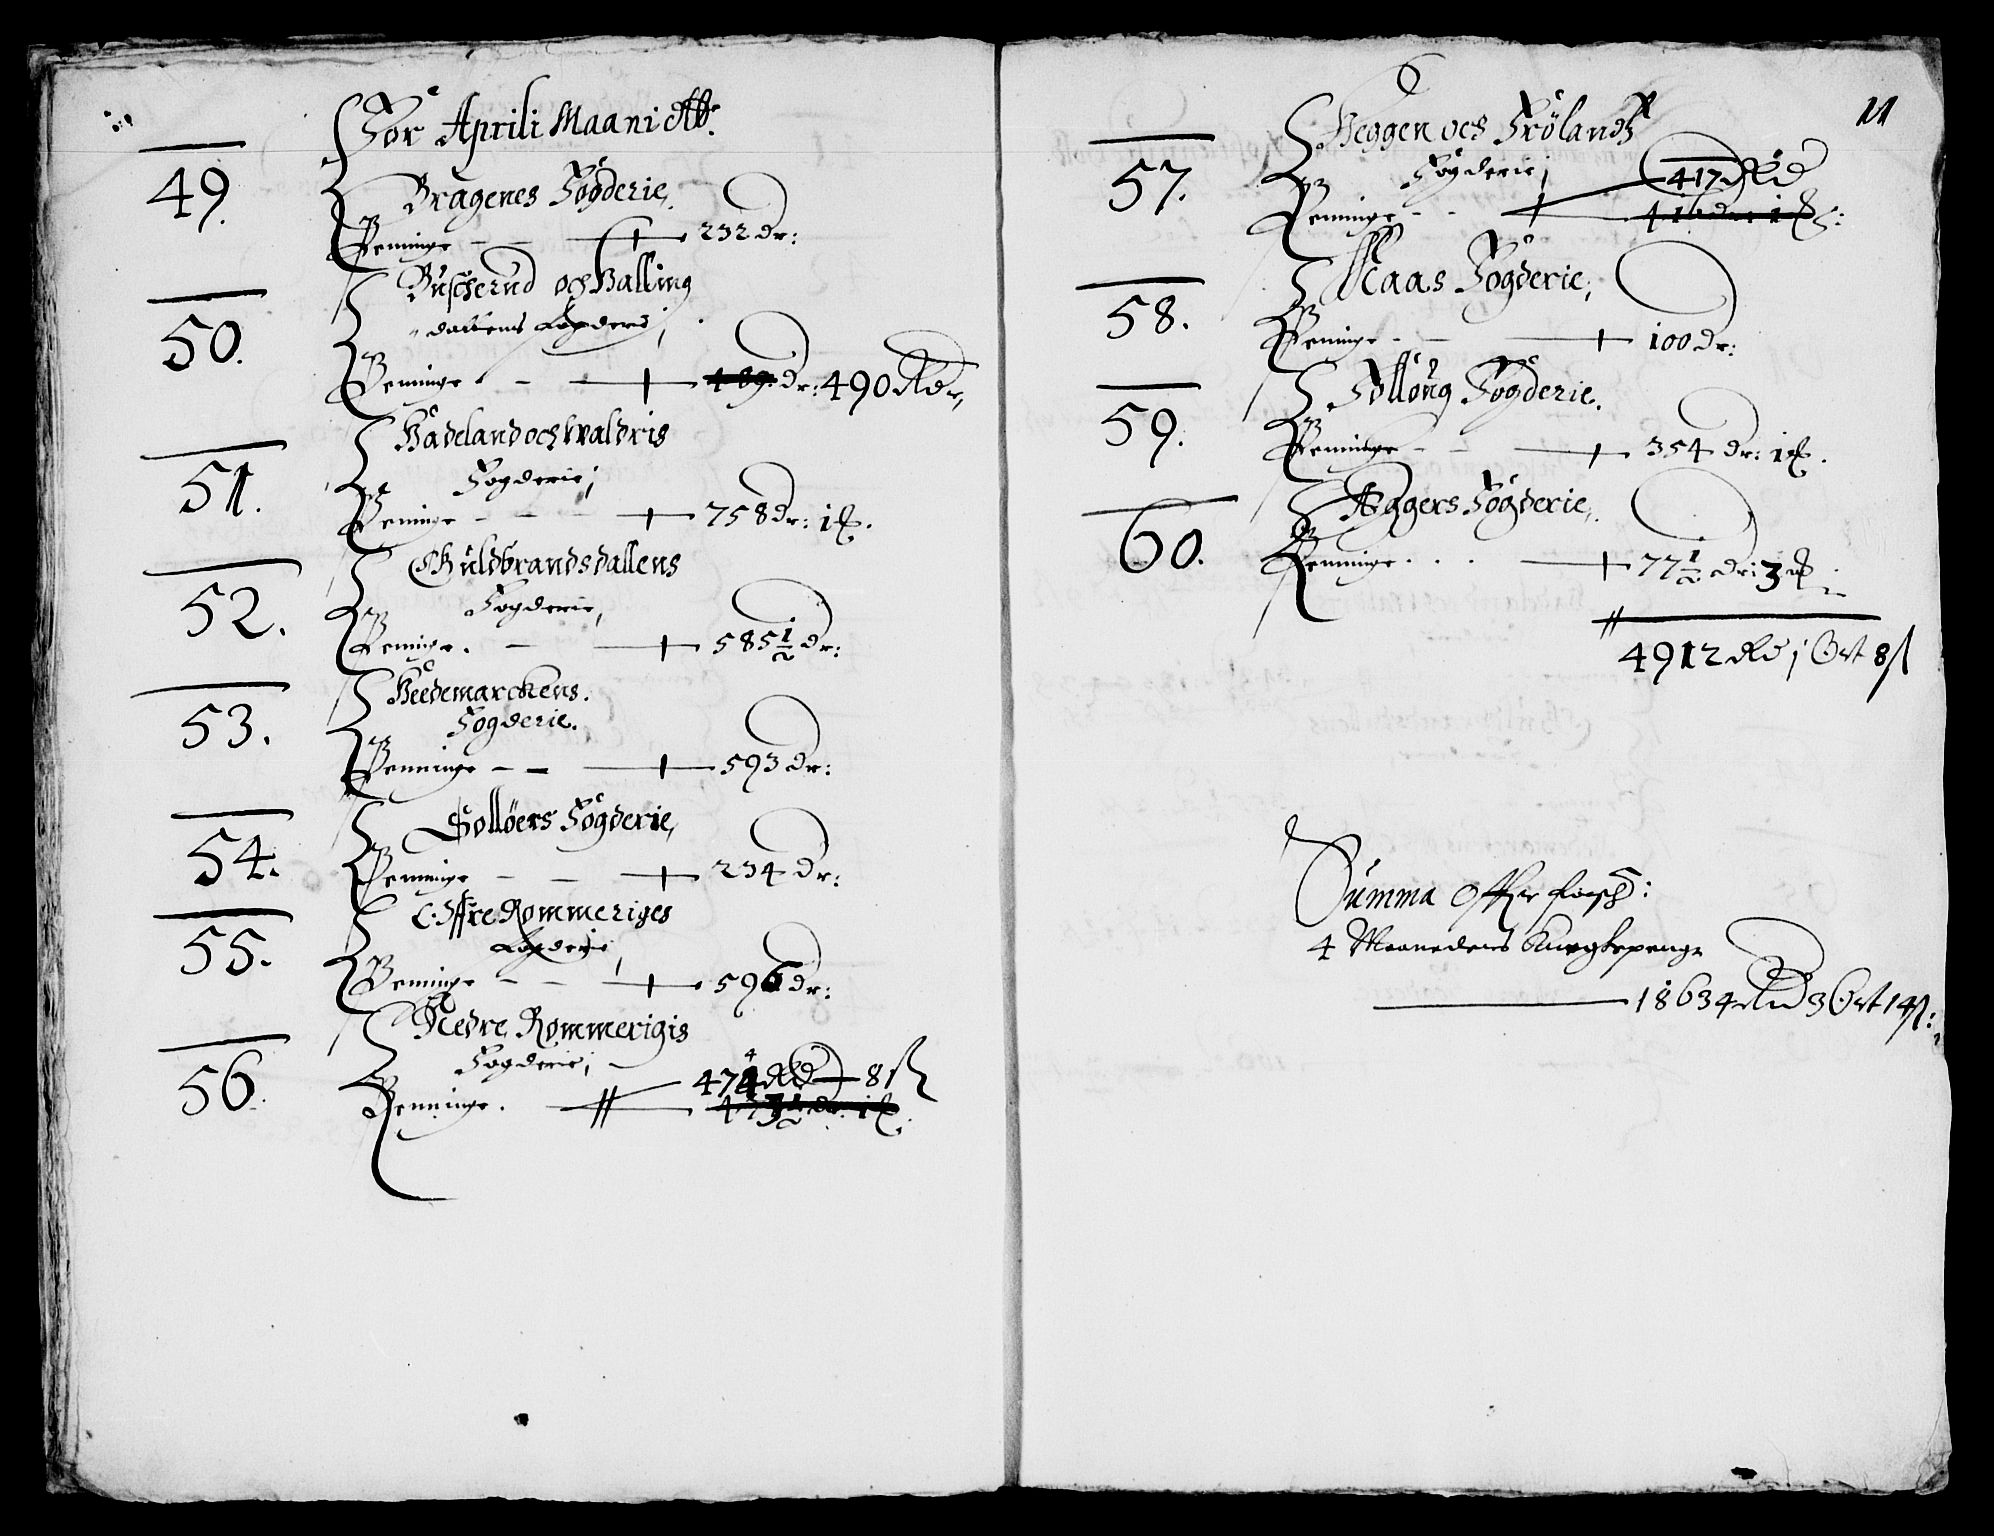 For Aprili Maanidtt.
49. Bragenes Fogderie,
Peninge — — 232 dr:
50. Buscherud och Halling
dallens Fogderi,
Peninge — — 489 dr: 490 Rdr,
51. Hadeland och Waldris
Fogderie,
Peninge — — 758 dr: 1 ℔.
52. Guldbrandsdallens
Fogderie,
Peninge. — 585½ dr:
53. Heedemarckens.
Fogderie.
Penninge — — 593 dr:
54. Solløers Fogderie,
Peninge — — 234 dr:
55. Offre Rommeriges
Fogderie,
Peninge — — 596 dr:
56. Nedre Rommerigis
Fogderie; 474 Rd — 8 ß
Penninge. 473½ dr: 1 ℔:
11
57. Heggen och Frølands
Fogderie; 417 Rd
Peninge — 416 dr: 1 ℔:
58. Maas Fogderie,
Peninge — — 100 dr:
59. Folloug Fogderie.
Peninge — — 354 dr: 1 ℔.
60. Aggers Fogderie,
Peninge . . . 77½ dr: 3 ℔
4912 Rd 1 Ort 8 ß
Summa offuer
4 Maaneders
18634 Rd 3 Ort 14 ß: